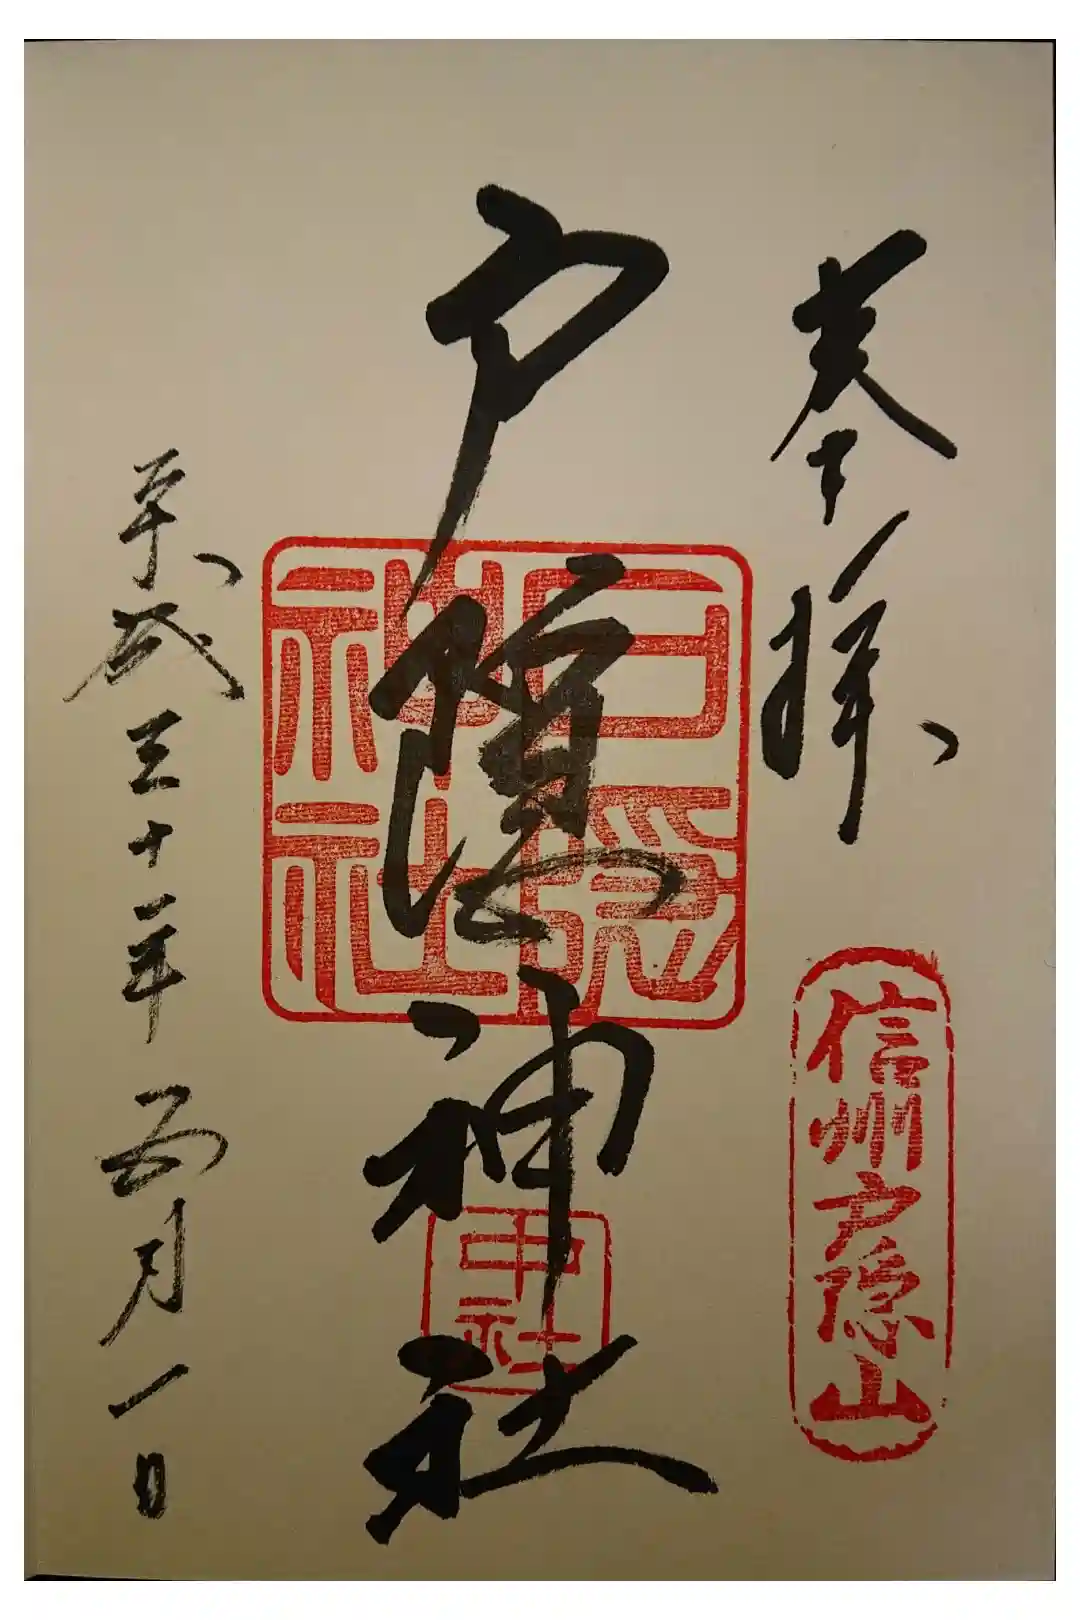 奉拝
信州戸隠山
戸隠神社
戸隠
神社
中社
平成三十年五月一日